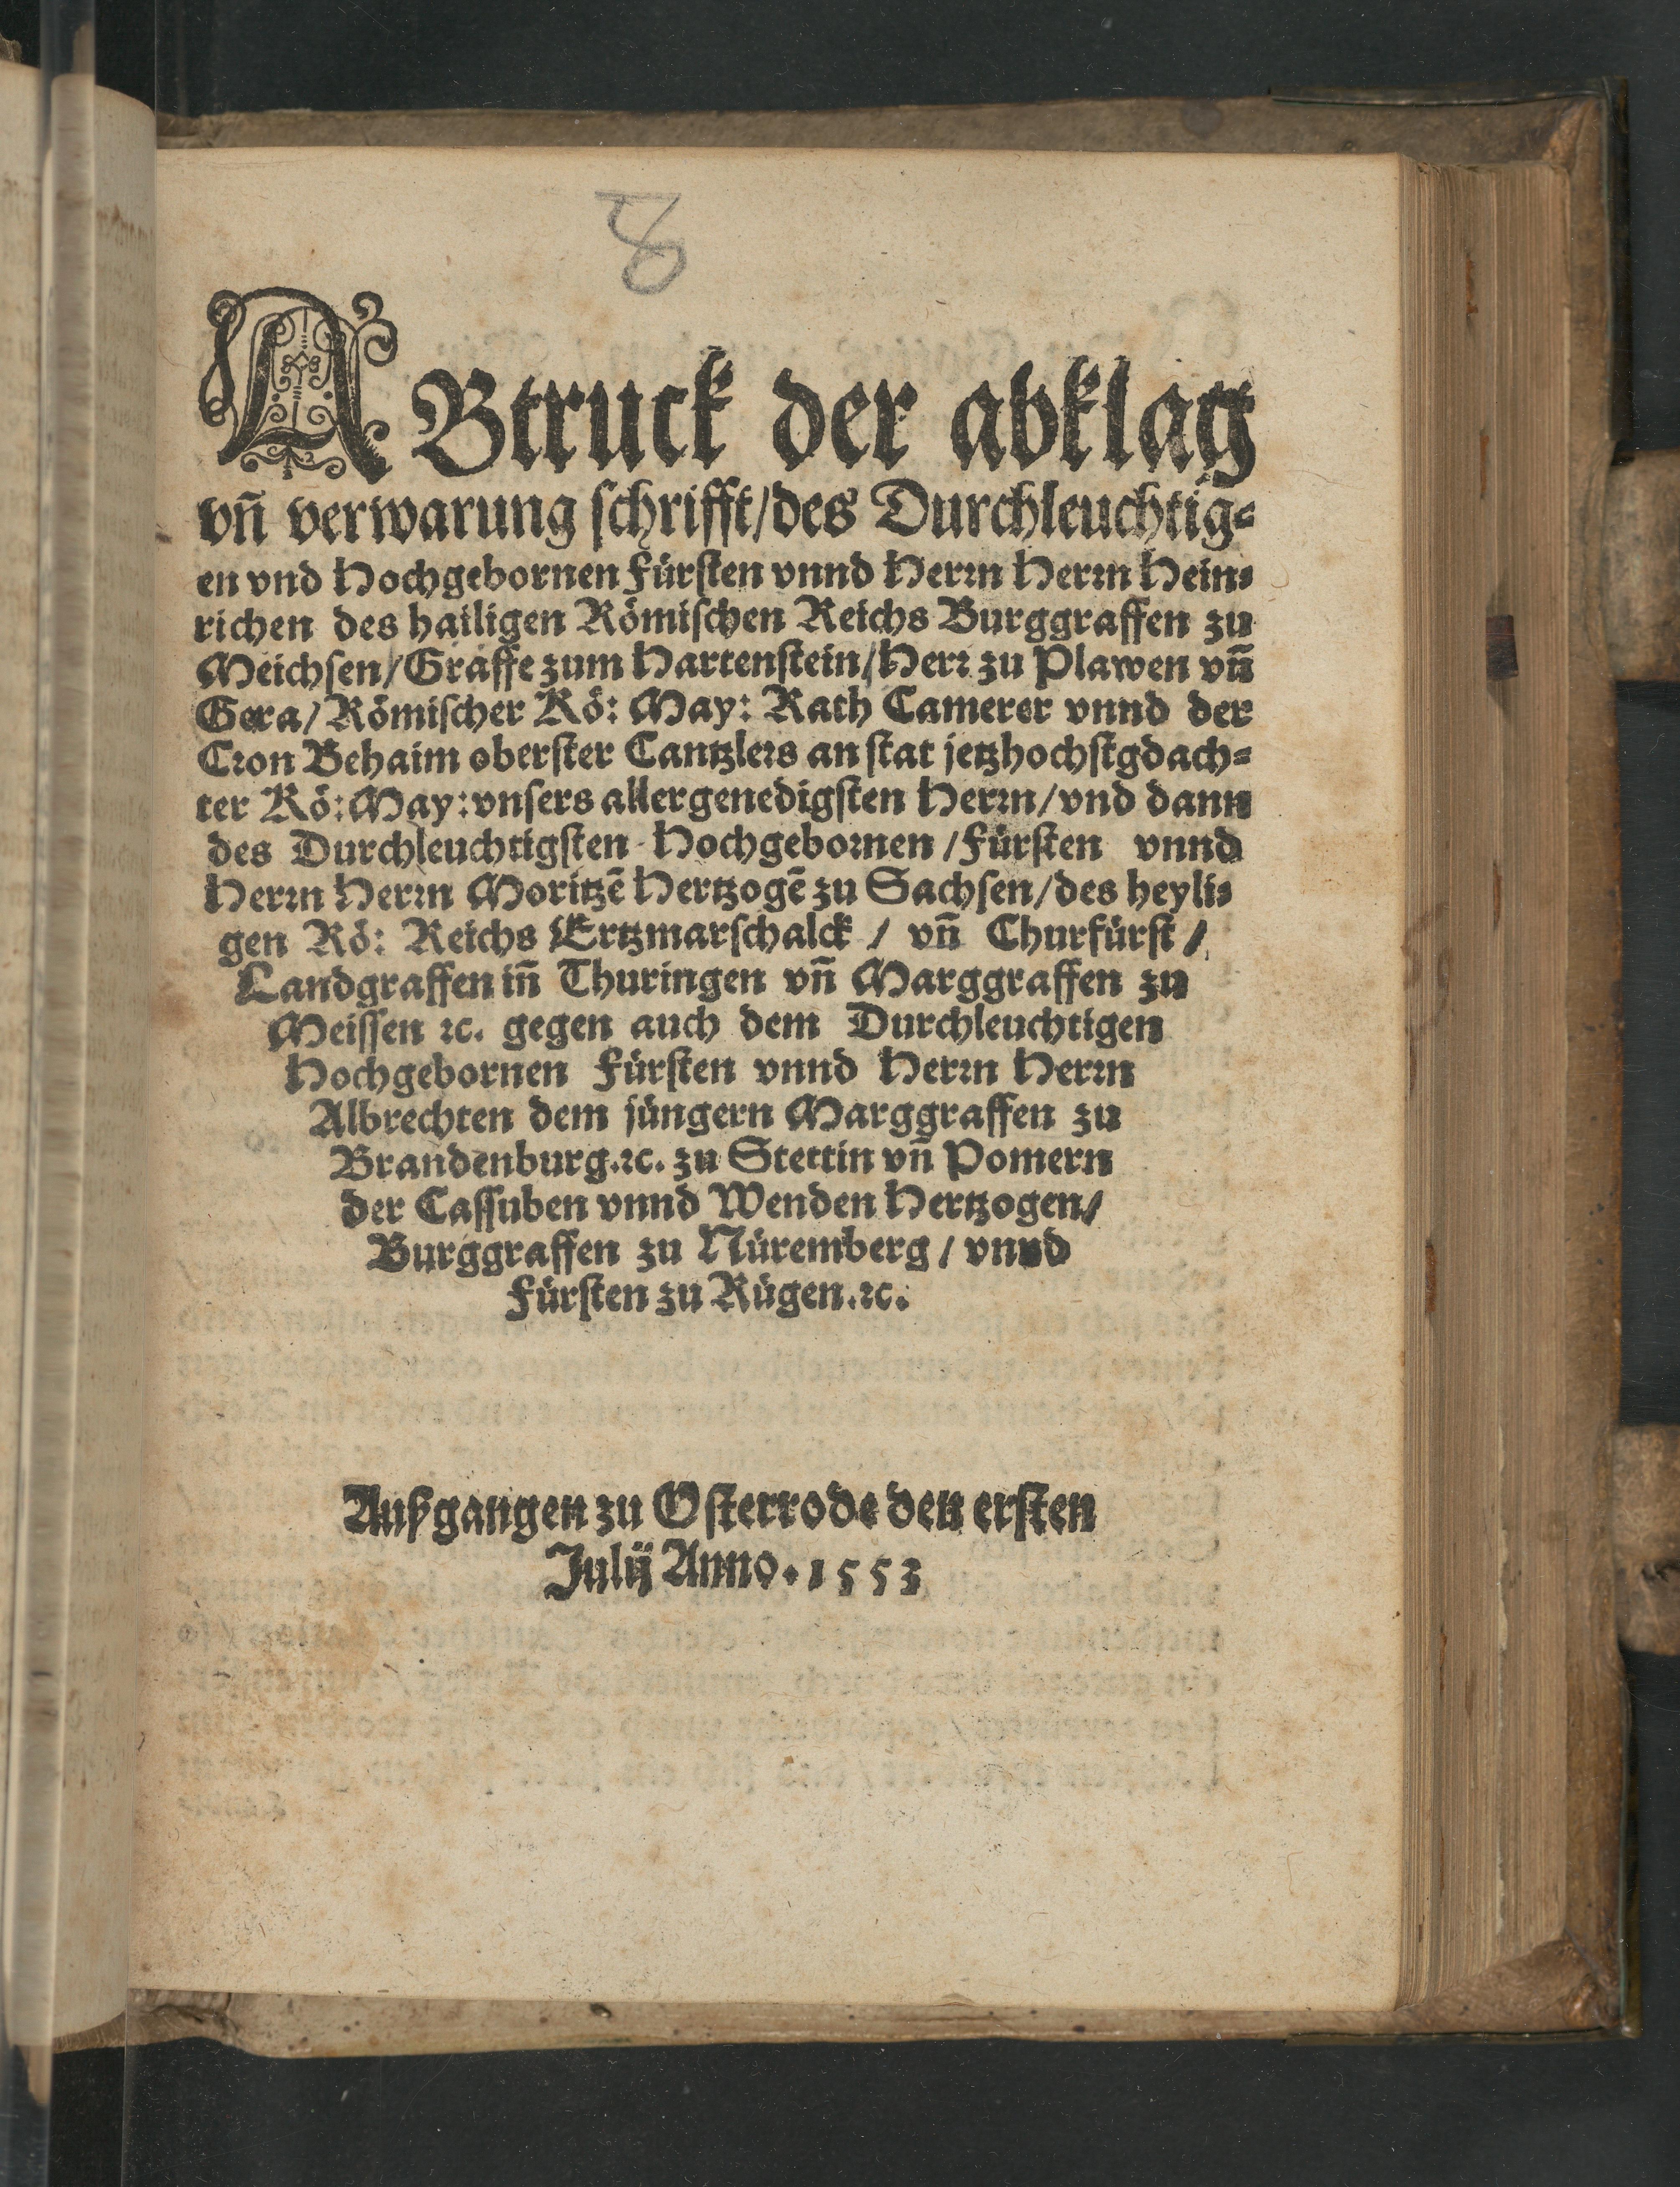 8
ABtruck der abklag
vn̄ verwarung schrifft/des Durchleuchtig-
en vnd Hochgebornen Fürsten vnnd Herrn Herrn Hein-
richen des hailigen Römischen Reichs Burggraffen zu
Meichsen/Graffe zum Hartenstein/Herr zu Plawen vn̄
Gera/Römischer Kö: May: Rath Camerer vnnd der
Cron Behaim oberster Cantzlers an stat jetzhochstgdach-
ter Kö: May: vnsers allergenedigsten Herrn/vnd dann
des Durchleuchtigsten Hochgebornen/Fürsten vnnd
Herrn Herrn Moritzē Hertzogē zu Sachsen/des heyli-
gen Rö: Reichs Ertzmarschalck / vn̄ Churfürst /
Landgraffen in̄ Thuringen vn̄ Marggraffen zu
Meissen ꝛc. gegen auch dem Durchleuchtigen
Hochgebornen Fürsten vnnd Herrn Herrn
Albrechten dem jüngern Marggraffen zu
Brandenburg.ꝛc. zu Stettin vn̄ Pomern
der Cassuben vnnd Wenden Hertzogen/
Burggraffen zu Nüremberg / vnnd
Fürsten zu Rügen.ꝛc.
Außgangen zu Osterrode den ersten
Julij Anno. 1553